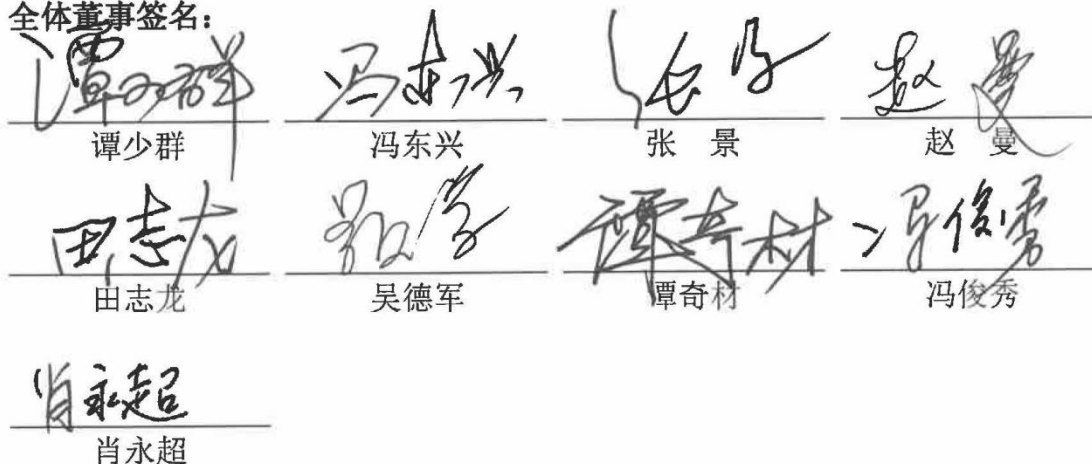 全体董事签名：
谭少群 冯东兴 张景 赵曼
谭少群 冯东兴 张 景 赵 曼
田志龙 谭奇材 冯俊秀
田志龙 吴德军 谭奇材 冯俊秀
肖永超
肖永超